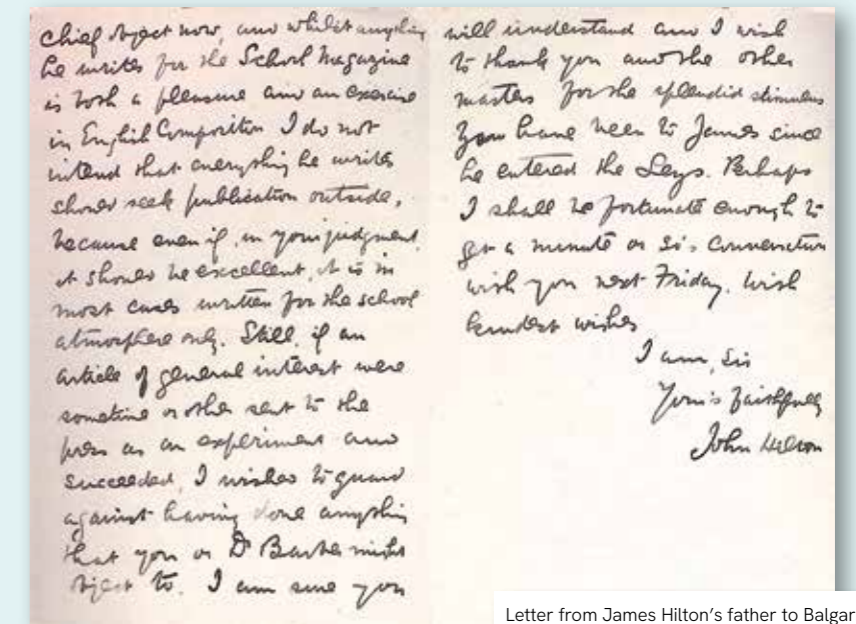 chief object now, and whilst anything
he writes for the School Magazine
is both a pleasure and an exercise
in English Composition I do not
intend that everything he writes
should seek publication outside,
because even if, in your judgment,
it should be excellent, it is in
most cases written for the school
atmosphere only. Still, if an
article of general interest were
sometime or other sent to the
press as an experiment and
succeeded, I wished to guard
against having done anything
that you or Dr Barber might
object to. I am sure you
will understand and I wish
to thank you and the other
masters for the splendid stimulus
you have been to James since
he entered the Leys. Perhaps
I shall be fortunate enough to
get a minute or so's conversation
with you next Friday. With
kindest wishes
I am, Sir
Yours faithfully
John Hilton
Letter from James Hilton's father to Balgar